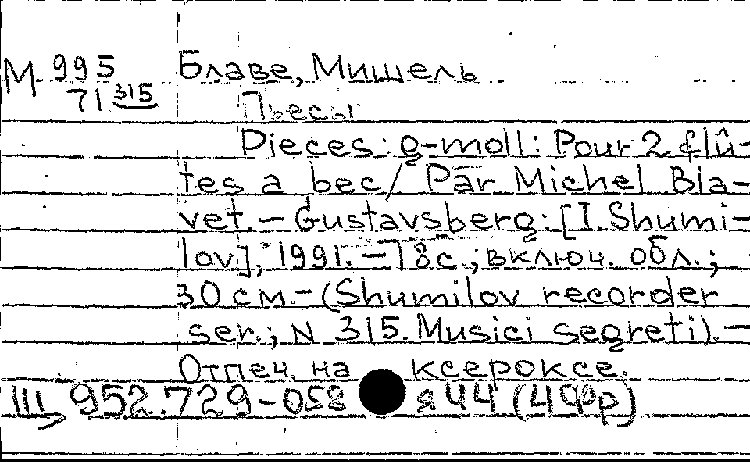 М 995 Блаве, Мишель
71 315
Пьесы
Pieces: g-moll: Pour 2 flû-
tes a bec / Par Michel Bla-
vet. – Gustavsberg: [I. Shumi-
lov], 1991. – 18 с.; включ. обл.;
30 см – (Shumilov recorder
ser.; N 315. Musici segreti). –
Отпеч. на ксероксе.
III 952.729-058 я44 (4Фр)